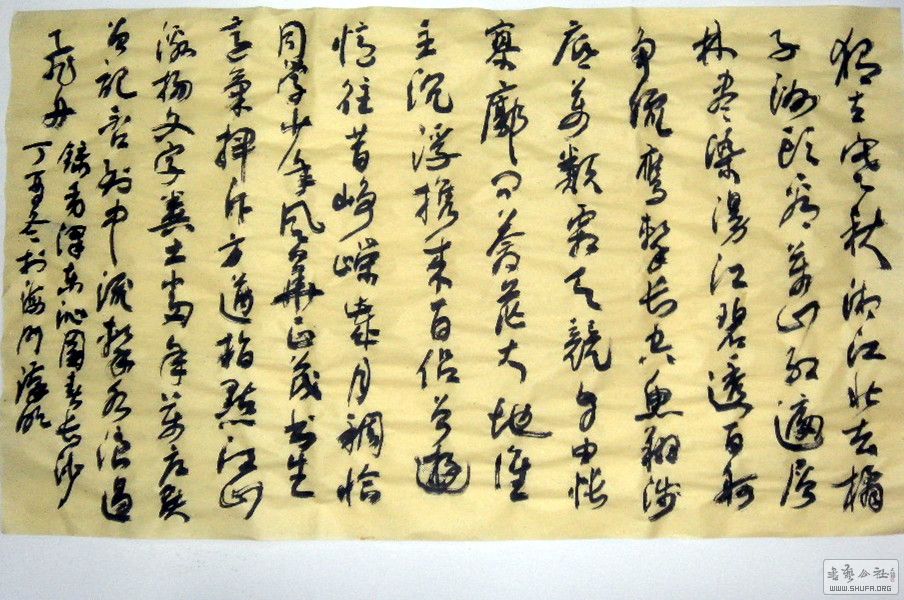 独立寒秋湘江北去橘
子洲头看萬山红遍层
林尽染漫江碧透百舸
争流鹰击长空鱼翔浅
底萬類霜天競自由怅
寥廓问苍茫大地谁
主沉浮携来百侣曾遊
忆往昔峥嵘岁月稠恰
同学少年风華正茂书生
意氣挥斥方遒指點江山
激扬文字粪土当年萬户侯
曾记否到中流击水浪遏
飞舟
錄毛泽东沁园春长沙
丁亥冬於海门
書藝公社
WWW.SHUFA.ORG